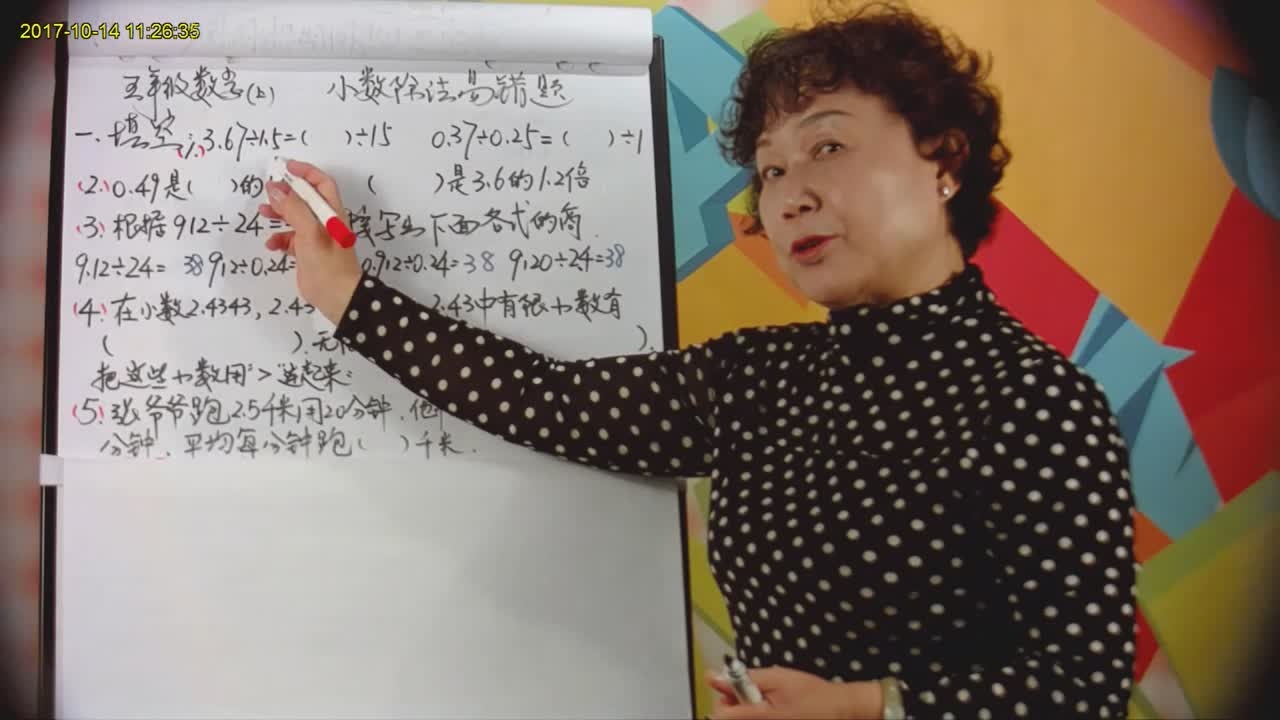 2017-10-14 11:26:35
五年级数学(上) 小数除法易错题
一.填空;(1.)3.67÷1.5=( )÷15 0.37÷0.25=( )÷1
(2.)0.49是( )的 ( )是3.6的1.2倍
(3.)根据912÷24= 接写出下面各式的商.
9.12÷24= 38 912÷0.24= 0.912÷0.24=38 9120÷24=38
(4.)在小数2.4343,2.43 2.43中有限小数有
( ).无 ).
把这些小数用">"连起来:
(5.)张爷爷跑2.5千米用20分钟.他
分钟.平均每分钟跑( )千米.